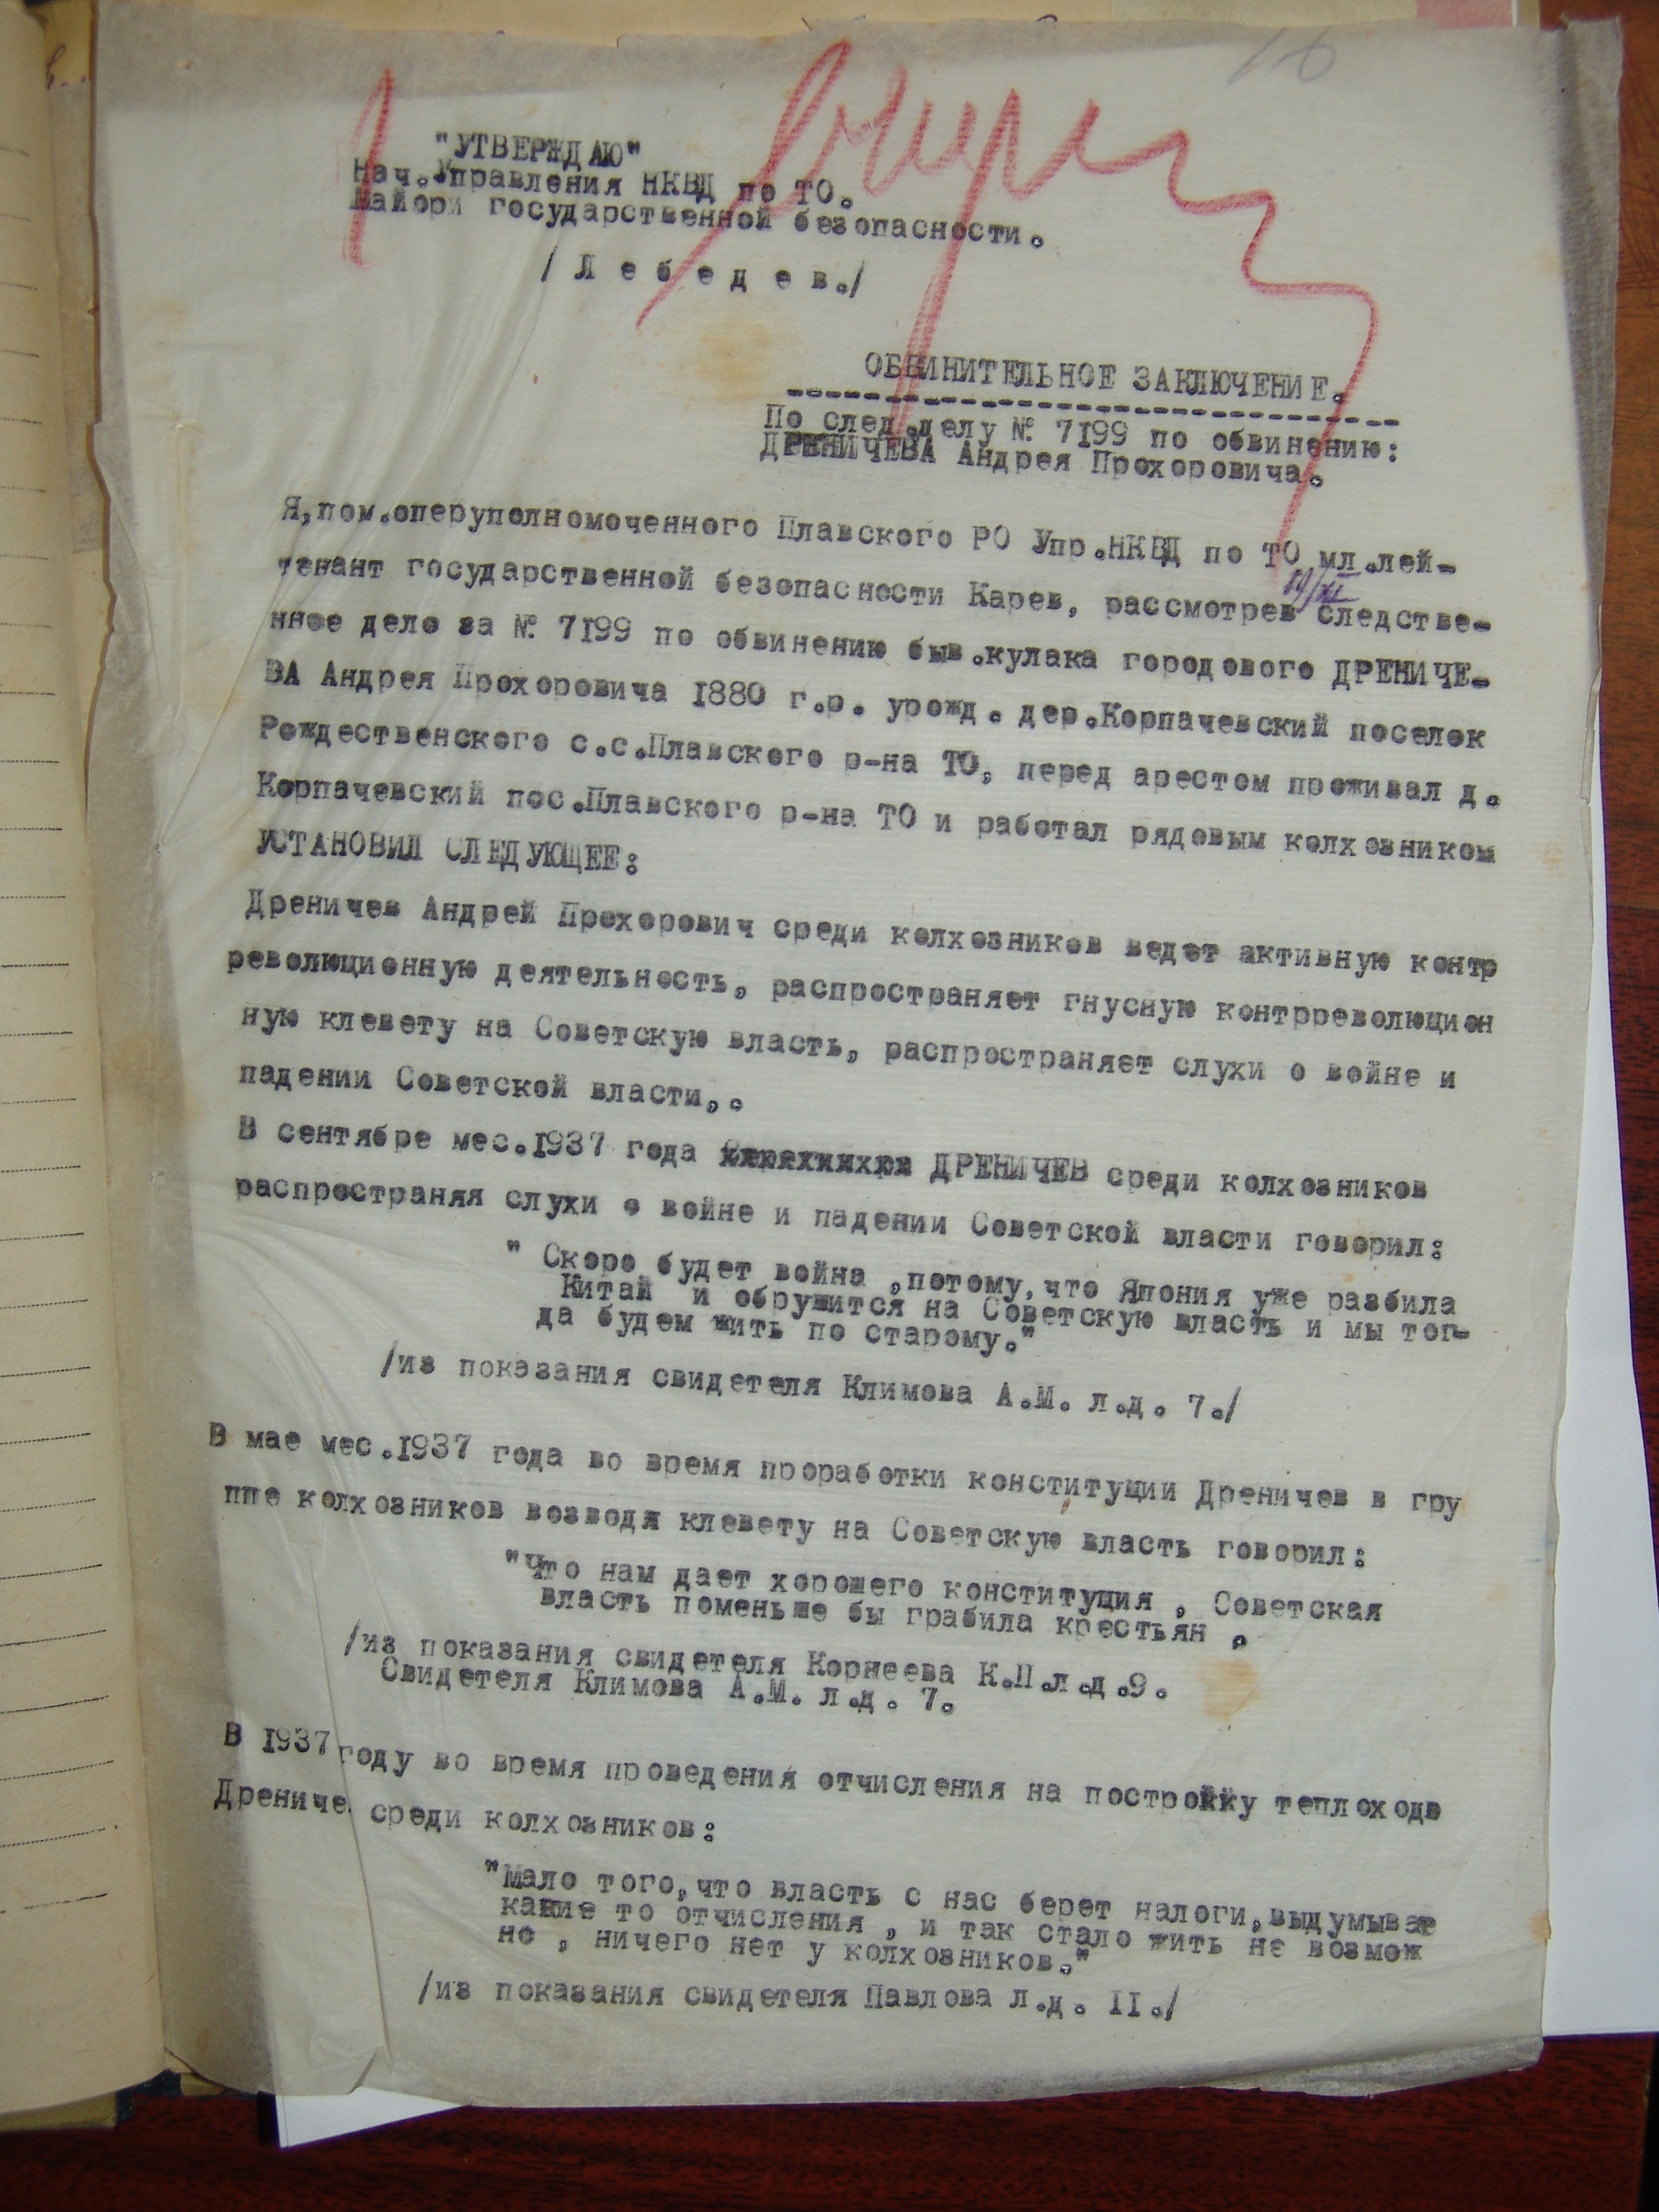 16
"УТВЕРЖДАЮ"
Нач.Управления НКВД по ТО.
Майори государственной безопасности.
/ Л е б е д е в./
ОБВИНИТЕЛЬНОЕ ЗАКЛЮЧЕНИЕ.
По след.делу № 7199 по обвинению:
ДРЕНИЧЕВА Андрея Прохоровича.
Я,пом.оперуполномоченного Плавского РО Упр.НКВД по ТО мл.лей-
тенант государственной безопасности Карев, рассмотрев следстве-
нное дело за № 7199 по обвинению быв.кулака городового ДРЕНИЧЕ-
ВА Андрея Прохоровича 1880 г.р. урожд. дер.Корпачевский поселок
Рождественского с.с.Плавского р-на ТО, перед арестом проживал д.
Корпачевский пос.Плавского р-на ТО и работал рядовым колхозником
УСТАНОВИЛ СЛЕДУЮЩЕЕ:
Дреничев Андрей Прохорович среди колхозников ведет активную контр
революционную деятельность, распространяет гнусную контрреволюцион
ную клевету на Советскую власть, распространяет слухи о войне и
падении Советской власти,.
В сентябре мес.1937 года ДРЕНИЧЕВ среди колхозников
распространяя слухи о войне и падении Советской власти говорил:
" Скоро будет война ,потому,что Япония уже разбила
Китай и обрушится на Советскую власть и мы тог-
да будем жить по старому."
/из показания свидетеля Климова А.М. л.д. 7./
В мае мес.1937 года во время проработки конституции Дреничев в гру
ппе колхозников возводя клевету на Советскую власть говорил:
"Что нам дает хорошего конституция , Советская
власть поменьше бы грабила крестьян ,
/из показания свидетеля Корнеева К.П.л.д.9.
Свидетеля Климова А.М. л.д. 7.
В 1937 году во время проведения отчисления на постройку теплохода
Дрениче среди колхозников:
"Мало того,что власть с нас берет налоги,выдумыват
какие то отчисления , и так стало жить не возмож
но , ничего нет у колхозников."
/из показания свидетеля Павлова л.д. II./